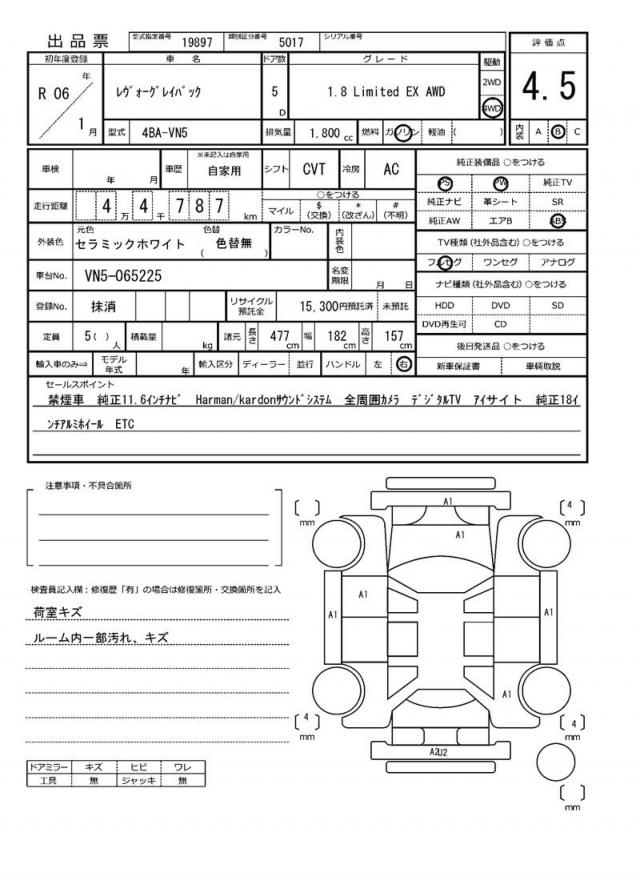 出品票 型式指定番号 19897 類別区分番号 5017 シリアル番号
初年度登録 車名 ドア数 グレード 駆動 評価点
R 06 年 1 月 ﾚｳﾞｫｰｸﾞﾚｲﾊﾞｯｸ 5 D 1.8 Limited EX AWD 2WD 4WD 4.5
型式 4BA-VN5 排気量 1.800 cc 燃料 ガソリン 軽油 ( ) 内装 A B C
車検 年 月 車歴 ※未記入は自家用 自家用 シフト CVT 冷房 AC 純正装備品 ○をつける
PS PW 純正TV
走行距離 4 万 4 千 7 8 7 km ○をつける マイル $ (交換) * (改ざん) # (不明) 純正ナビ 革シート SR
純正AW エアB ABS
外装色 元色 セラミックホワイト 色替 ( 色替無 ) カラーNo. 内装色 TV種類(社外品含む)○をつける
フルセグ ワンセグ アナログ
車台No. VN5-065225 名変期限 月 日 ナビ種類(社外品含む)○をつける
登録No. 抹消 リサイクル預託金 15,300円預託済 未預託 HDD DVD SD
DVD再生可 CD
定員 5( ) 人 積載量 kg 諸元 長さ 477 cm 幅 182 cm 高さ 157 cm 後日発送品 ○をつける
輸入車のみ⇒ モデル年式 年 輸入区分 ディーラー 並行 ハンドル 左 右 新車保証書 車輌取説
セールスポイント
禁煙車 純正11.6ｲﾝﾁﾅﾋﾞ Harman/kardonｻｳﾝﾄﾞｼｽﾃﾑ 全周囲ｶﾒﾗ ﾃﾞｼﾞﾀﾙTV ｱｲｻｲﾄ 純正18ｲ
ﾝﾁｱﾙﾐﾎｲｰﾙ ETC
注意事項・不具合箇所
検査員記入欄：修復歴「有」の場合は修復箇所・交換箇所を記入
荷室キズ
ルーム内一部汚れ、キズ
ドアミラー キズ ヒビ ワレ
工具 無 ジャッキ 無
A1
[ ] mm [ 4 ] mm
A1
A1
A1 A1
A1
[ 4 ] mm [ 4 ] mm
A2U2
[ ] mm